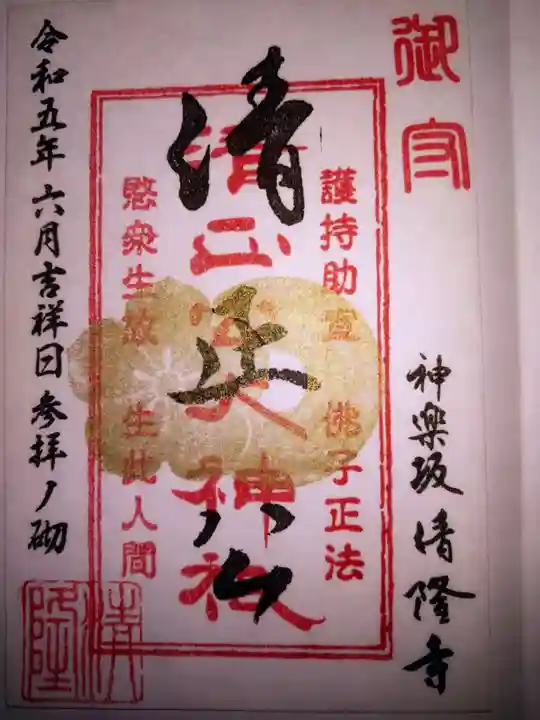 御守
神楽坂 清隆寺
護持助宣 佛子正法
清正公
清正 大神祇
愍衆生故 生此人間
令和五年六月吉祥日参拝ノ砌
清隆